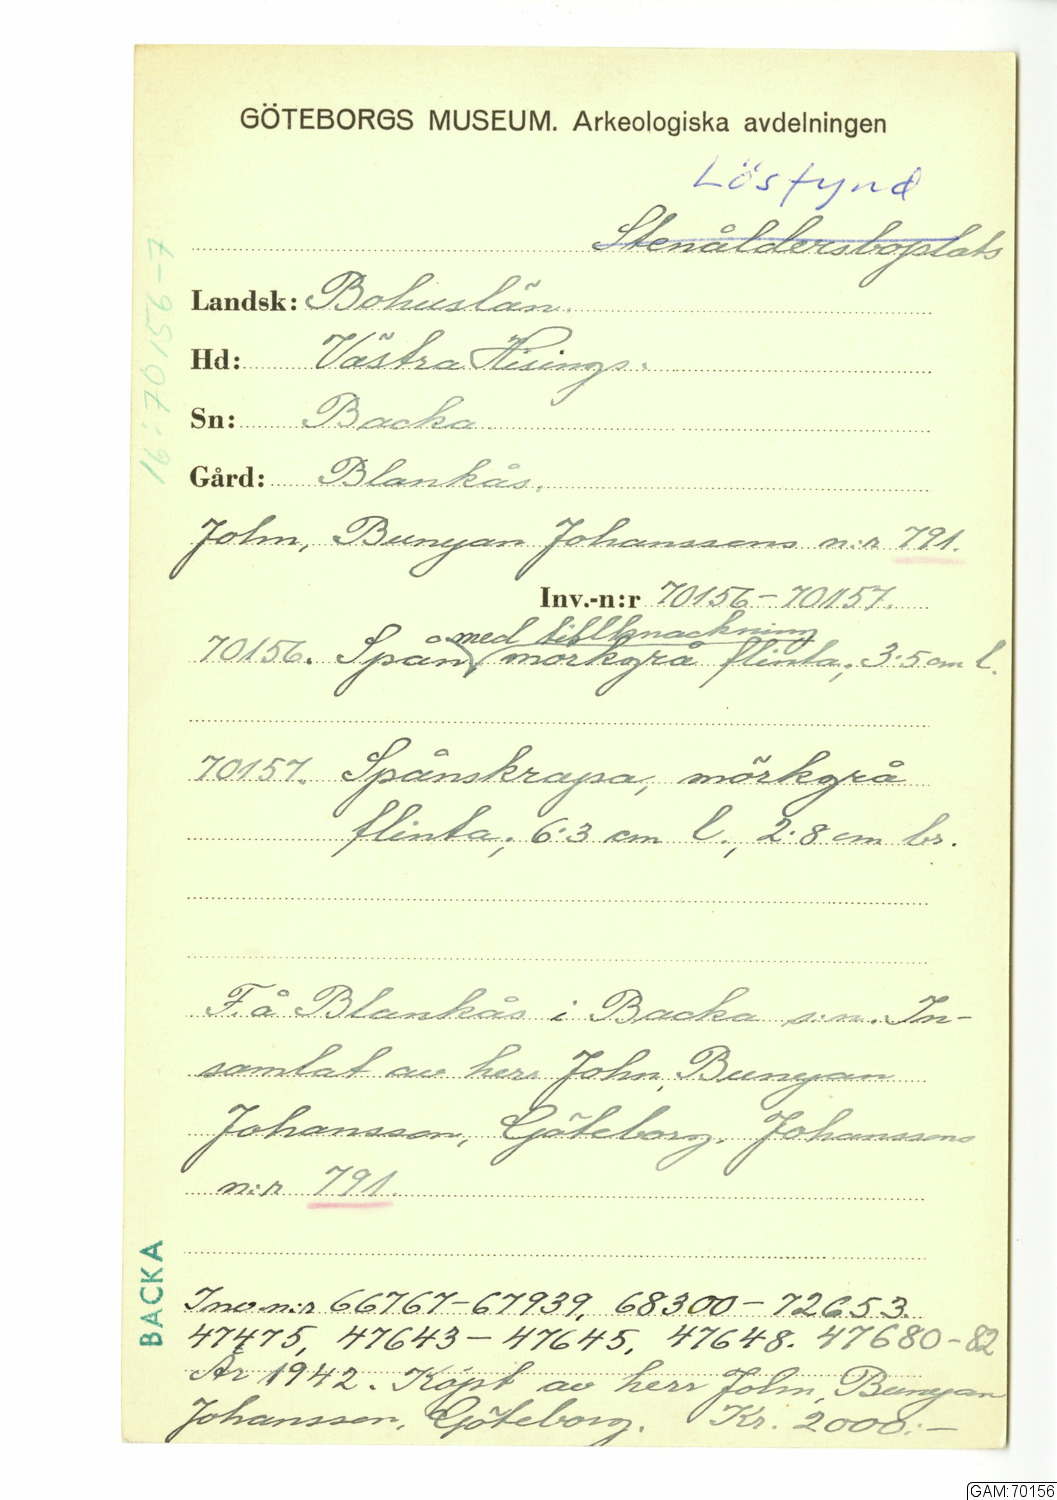 GÖTEBORGS MUSEUM. Arkeologiska avdelningen
Lösfynd
Stenåldersboplats
Landsk: Bohuslän.
Hd: Västra Hisings.
Sn: Backa
Gård: Blankås.
John, Bunyan Johanssons n:r 791.
Inv.-n:r 70156-70157.
med tillknackning
70156. Spån, mörkgrå flinta; 3.5 cm l.
70157. Spånskrapa, mörkgrå
flinta; 6.3 cm l., 2.8 cm br.
F. å Blankås i Backa s:n. In-
samlat av herr John, Bunyan
Johansson, Göteborg. Johanssons
n:r 791.
Inv n:r 66767-67939, 68300-72653.
47475, 47643-47645, 47648. 47680-82
År 1942. Köpt av herr John, Bunyan
Johansson, Göteborg. Kr. 2000:-
16:70156-7
BACKA
GAM:70156